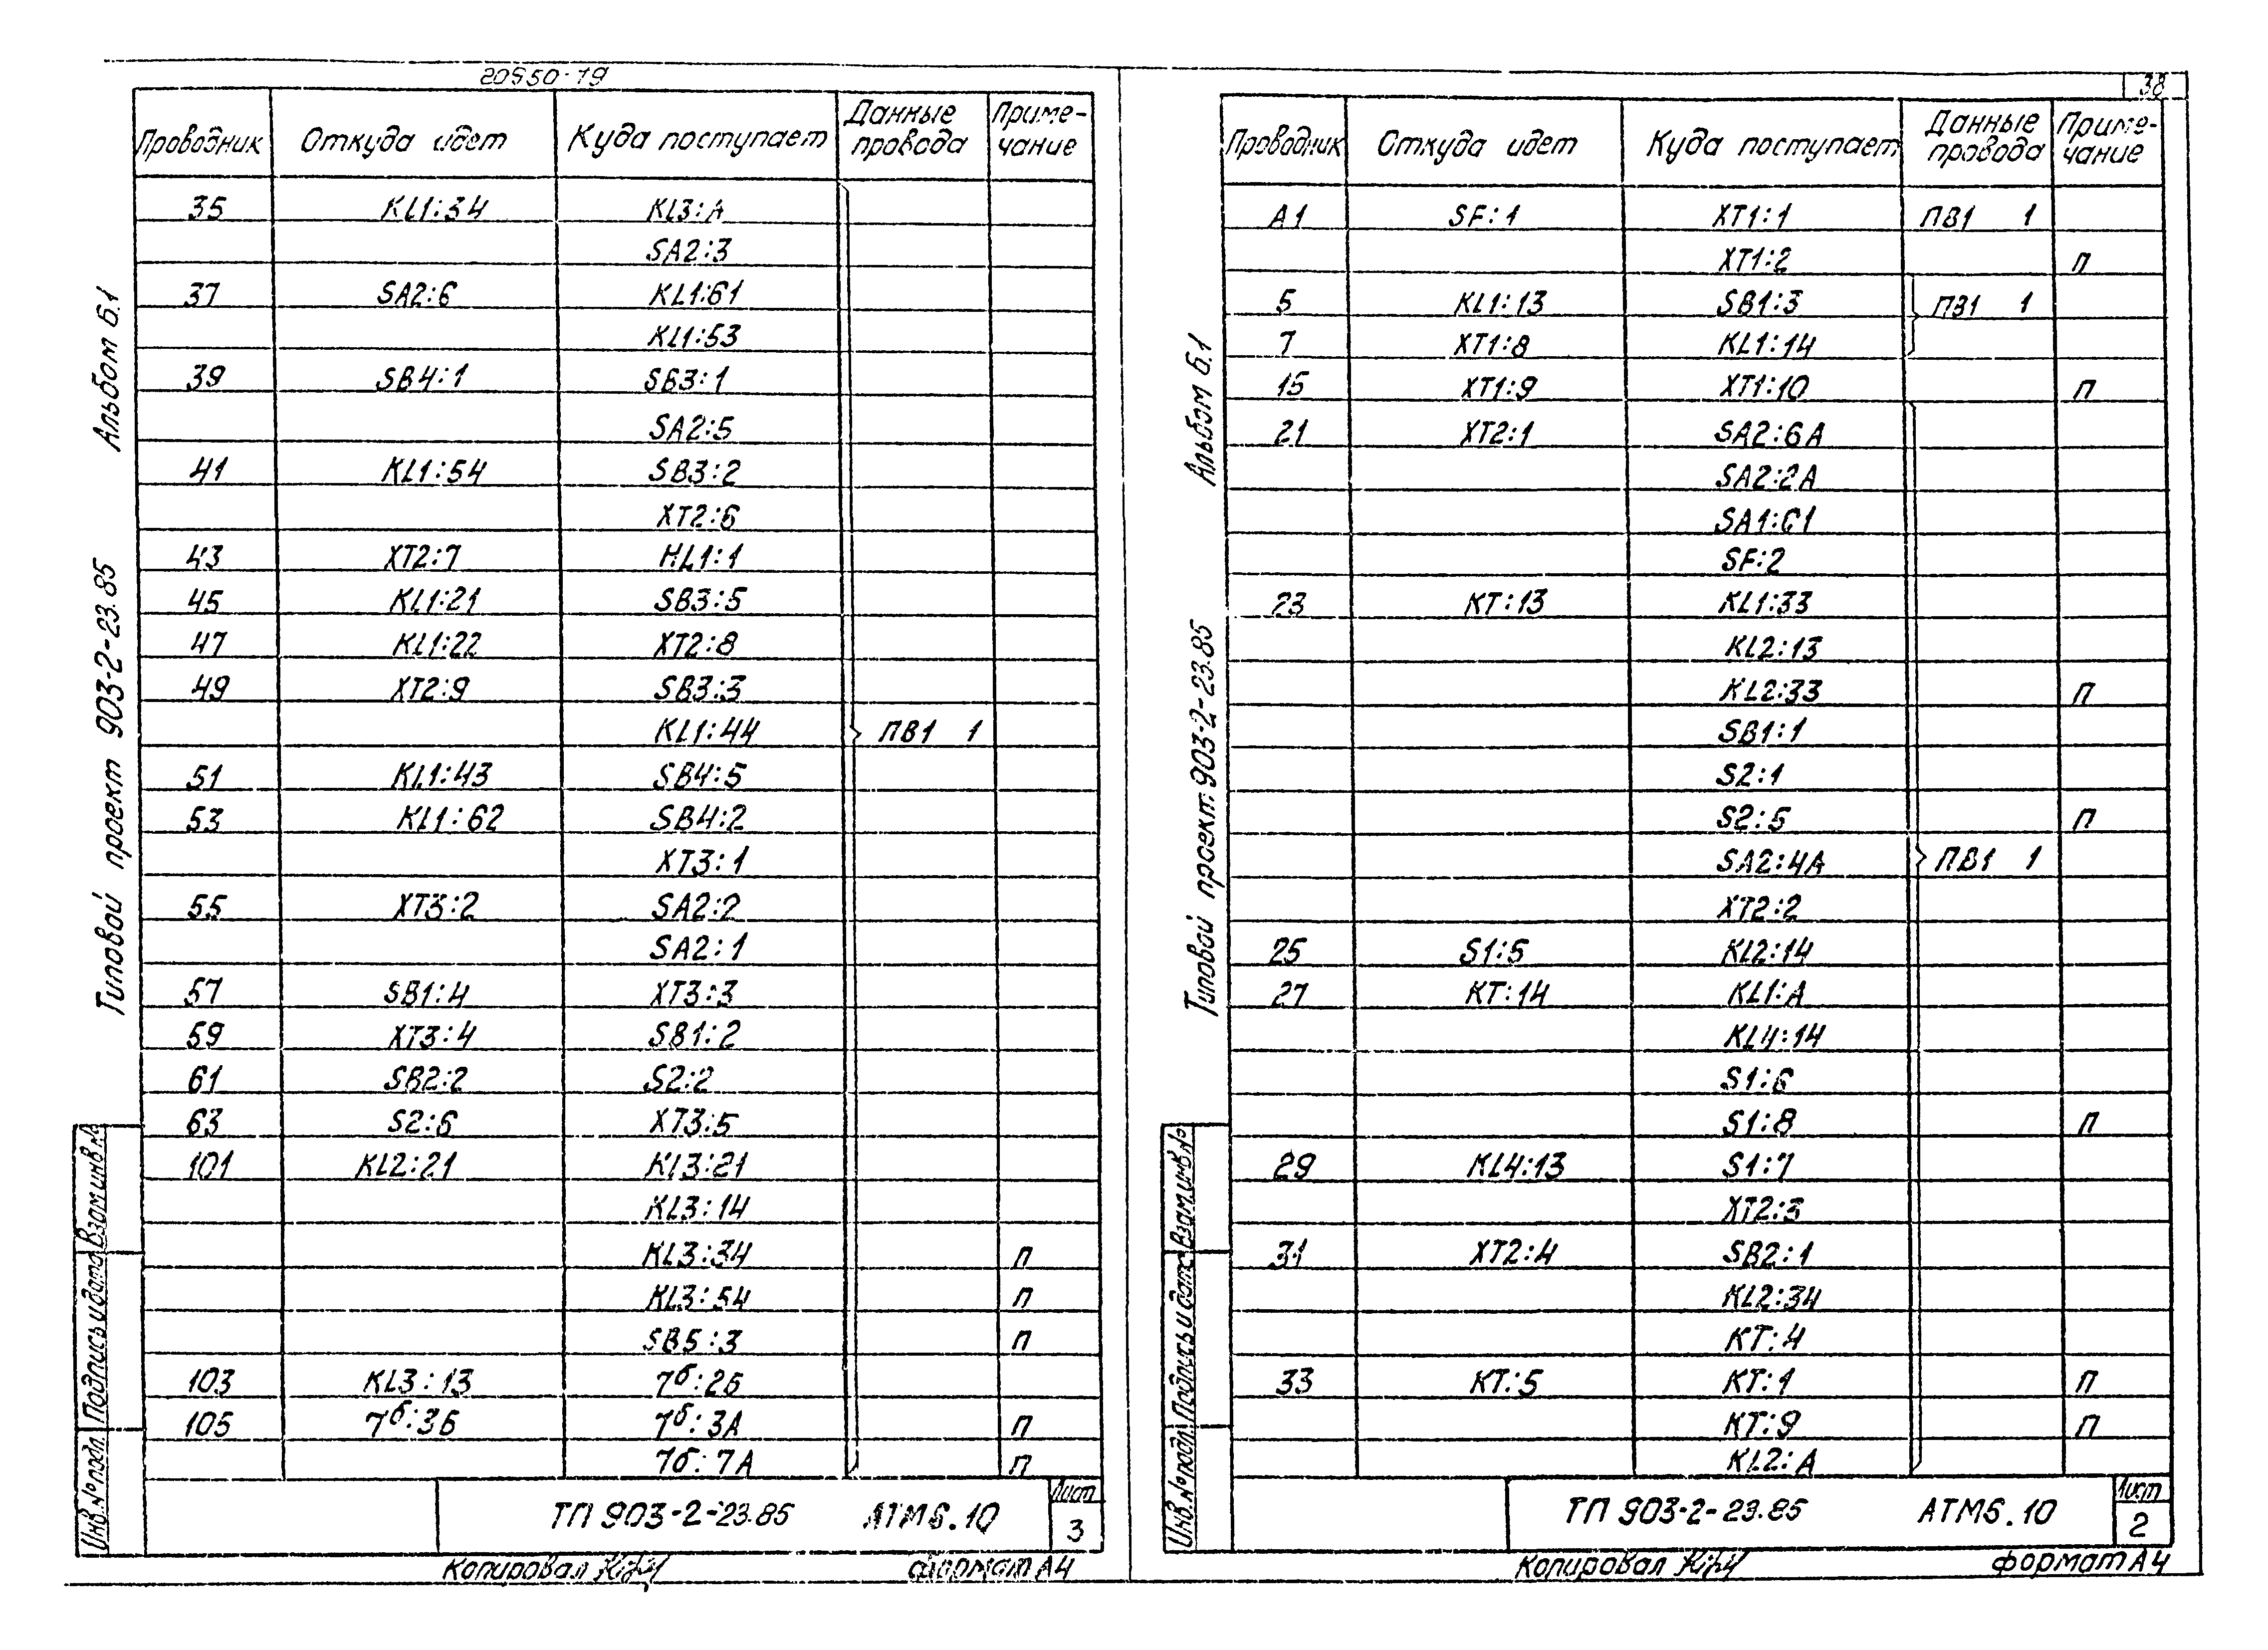 20950-19
Проводник Откуда идет Куда поступает Данные провода Примечание
35 KL1:34 KL3:A
SA2:3
37 SA2:6 KL1:61
KL1:53
39 SB4:1 SB3:1
SA2:5
41 KL1:54 SB3:2
XT2:6
43 XT2:7 HL1:1
45 KL1:21 SB3:5
47 KL1:22 XT2:8
49 XT2:9 SB3:3
KL1:44 ПВ1 1
51 KL1:43 SB4:5
53 KL1:62 SB4:2
XT3:1
55 XT3:2 SA2:2
SA2:1
57 SB1:4 XT3:3
59 XT3:4 SB1:2
61 SB2:2 S2:2
63 S2:6 XT3:5
101 KL2:21 KL3:21
KL3:14
KL3:34 П
KL3:54 П
SB5:3 П
103 KL3:13 7б:2Б
105 7б:3Б 7б:3А П
7б:7А П
Альбом 6.1
Типовой проект 903-2-23.85
Взам.инв.№
Подпись и дата
Инв.№ подл.
ТП 903-2-23.85 АТМ6.10 Лист 3
Копировал формат А4
38
Проводник Откуда идет Куда поступает Данные провода Примечание
А1 SF:1 XT1:1 ПВ1 1
XT1:2 П
5 KL1:13 SB1:3 ПВ1 1
7 XT1:8 KL1:14
15 XT1:9 XT1:10 П
21 XT2:1 SA2:6A
SA2:2A
SA1:C1
SF:2
23 KT:13 KL1:33
KL2:13
KL2:33 П
SB1:1
S2:1
S2:5 П
SA2:4A ПВ1 1
XT2:2
25 S1:5 KL2:14
27 KT:14 KL1:A
KL4:14
S1:6
S1:8 П
29 KL4:13 S1:7
XT2:3
31 XT2:4 SB2:1
KL2:34
KT:4
33 KT:5 KT:1 П
KT:9 П
KL2:A
Альбом 6.1
Типовой проект 903-2-23.85
Взам.инв.№
Подпись и дата
Инв.№ подл.
ТП 903-2-23.85 АТМ6.10 Лист 2
Копировал формат А4